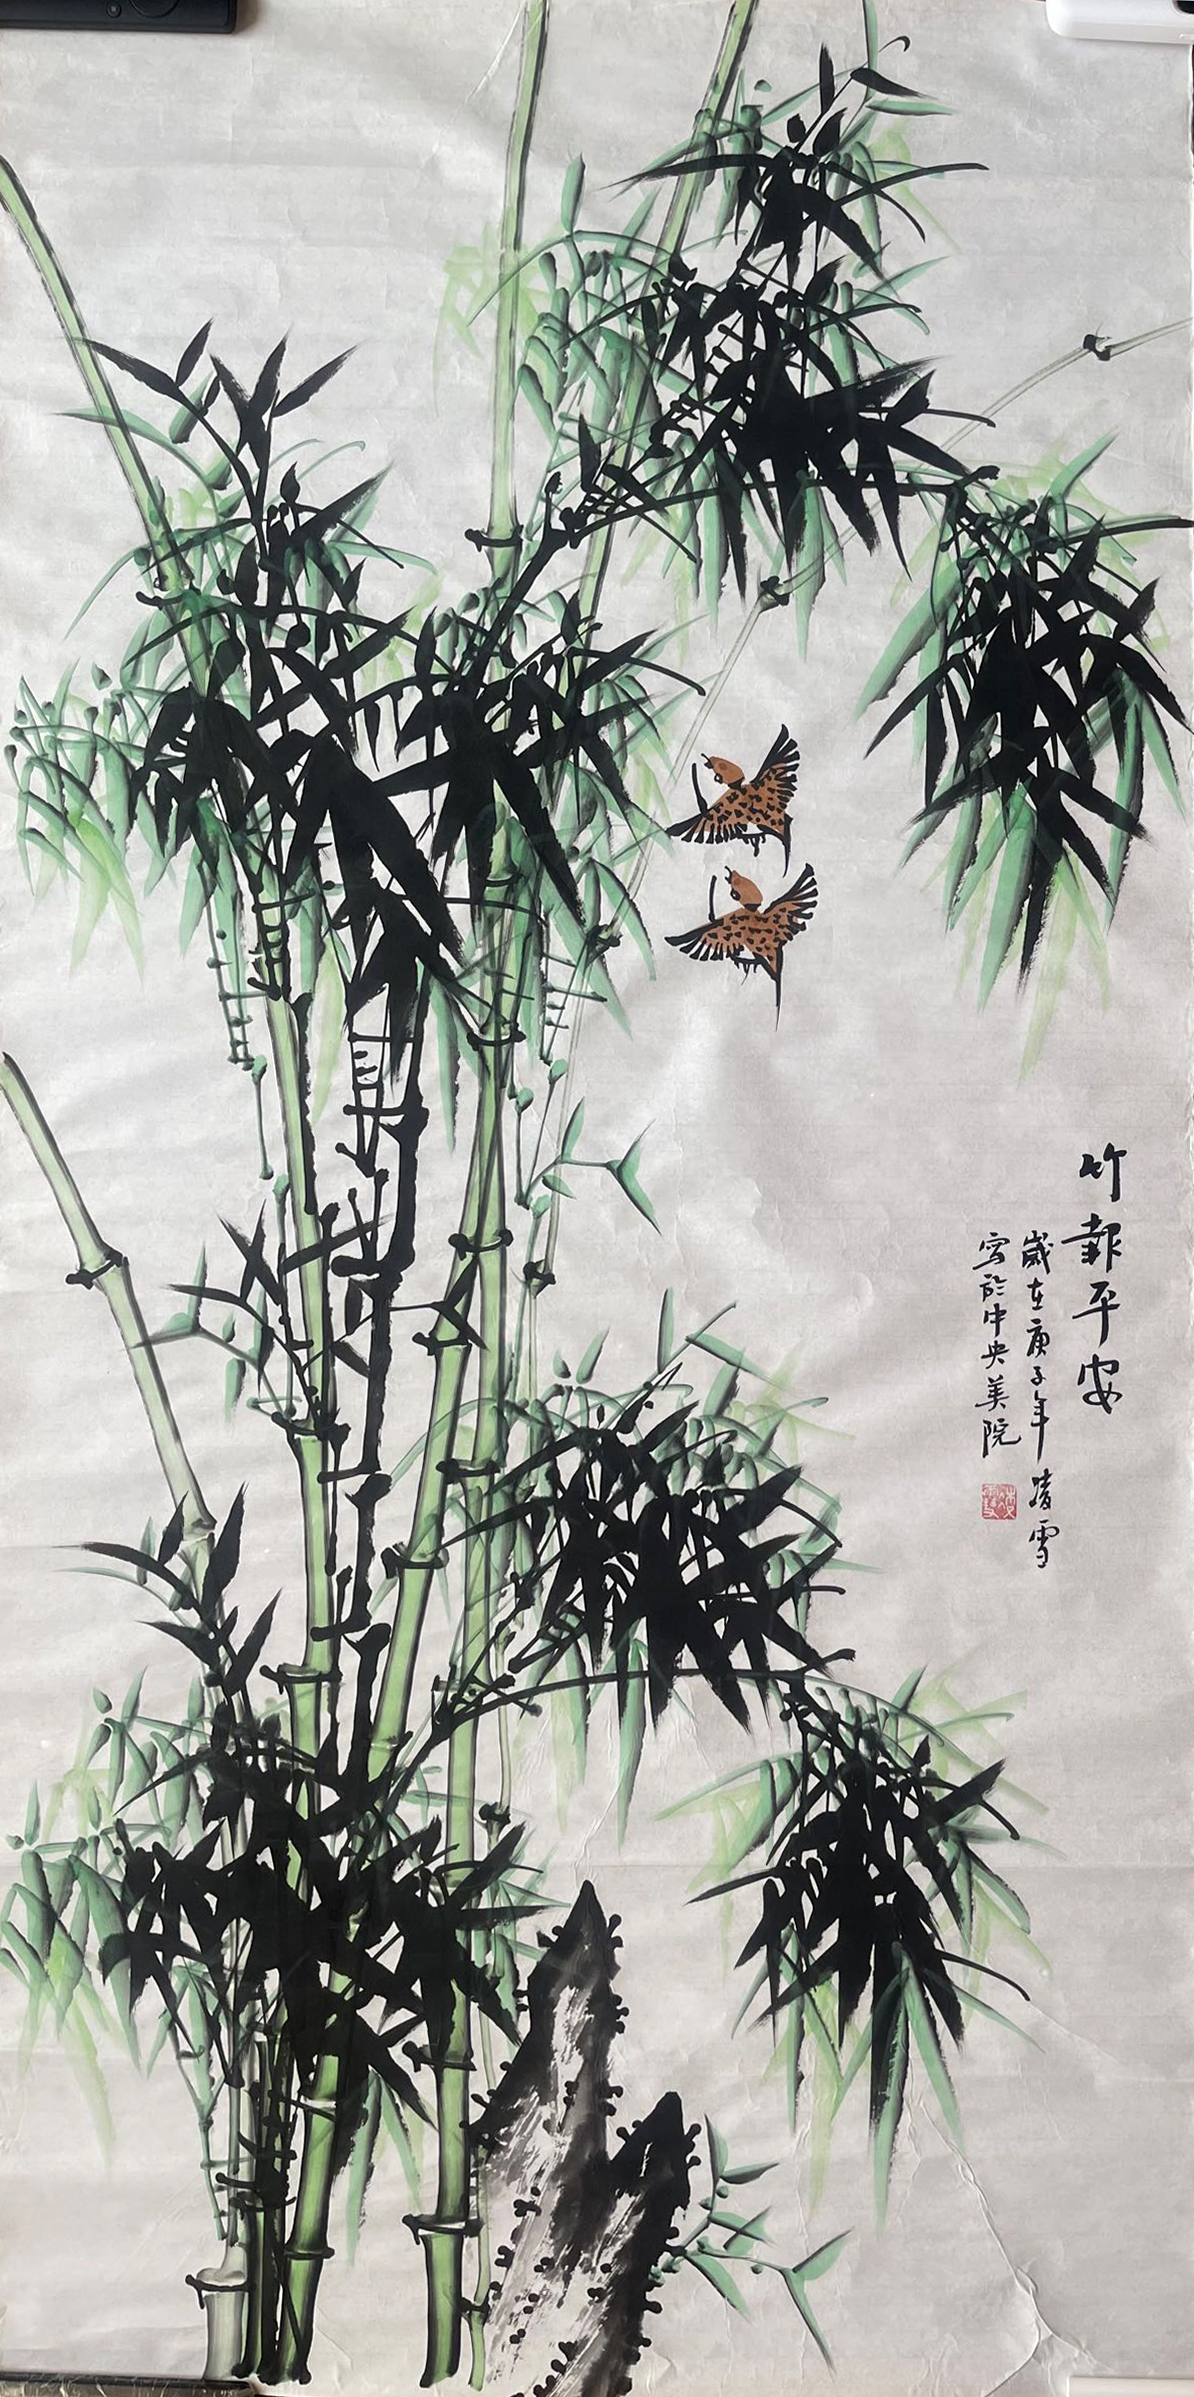 竹報平安
歲在庚子年 凌雪
寫於中央美院
凌雪